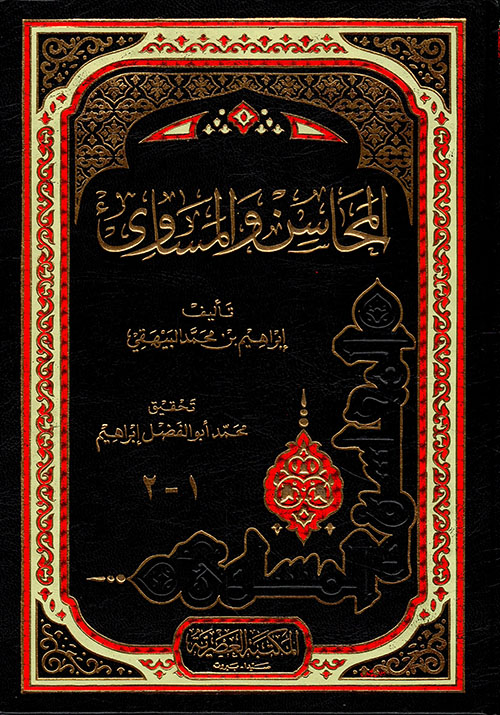 المحَاسِن وَالمسَاوئ
تأليف
إبراهيم بن محمد البيهقي
تحقيق
محمد أبو الفضل إبراهيم
١ - ٢
المحاسن و
المساوئ
المكتبة العصرية
صيدا - بيروت